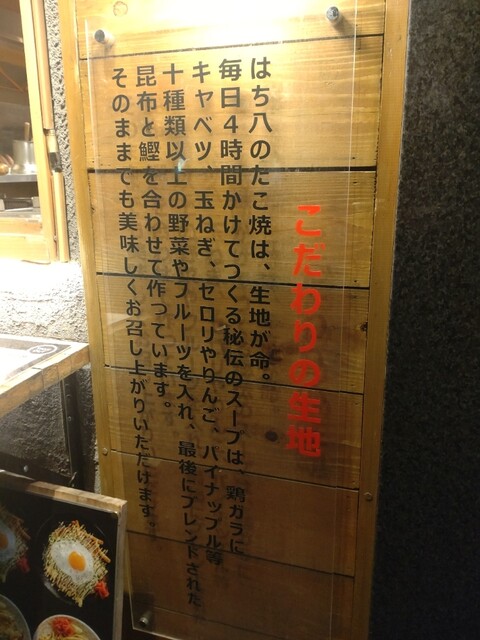 こだわりの生地
はち八のたこ焼は、生地が命。
毎日4時間かけてつくる秘伝のスープは、鶏ガラに
キャベツ、玉ねぎ、セロリやりんご、パイナップル等
十種類以上の野菜やフルーツを入れ、最後にブレンドされた
昆布と鰹を合わせて作っています。
そのままでも美味しくお召し上がりいただけます。